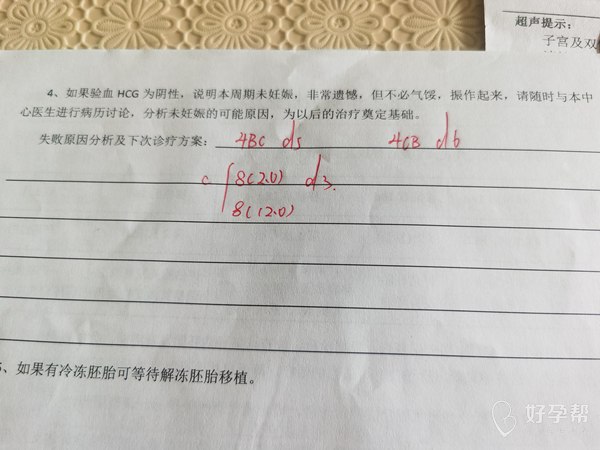 超声提示：
子宫及双
4、如果验血 HCG 为阴性，说明本周期未妊娠，非常遗憾，但不必气馁，振作起来，请随时与本中
心医生进行病历讨论，分析未妊娠的可能原因，为以后的治疗奠定基础。
失败原因分析及下次诊疗方案： 4BC d5 4CB d6
8(2.0) d3.
8(12.0)
、如果有冷冻胚胎可等待解冻胚胎移植。
好孕帮